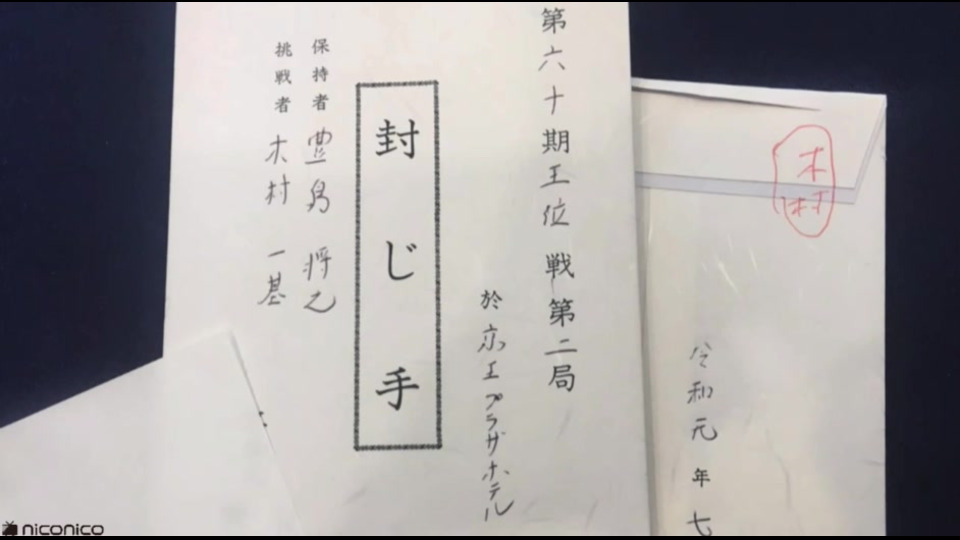 第六十期王位戦第二局
於 京王プラザホテル
封じ手
保持者 豊島 将之
挑戦者 木村 一基
木村
令和元年七
niconico